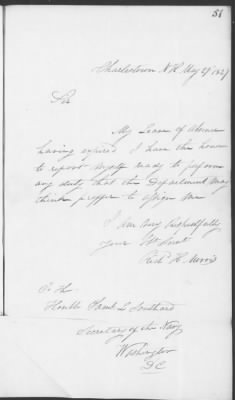 51
Charlestown N.H. May 29 1827
Sir
My Leave of Absence
having expired I have the honor
to report myself ready to perform
any duty that the Department may
think proper to assign me
I Am Very Respectfully
your Obt Servt
Richd H. Morris
To the
Honble Saml L Southard
Secretary of the Navy
Washington
DC